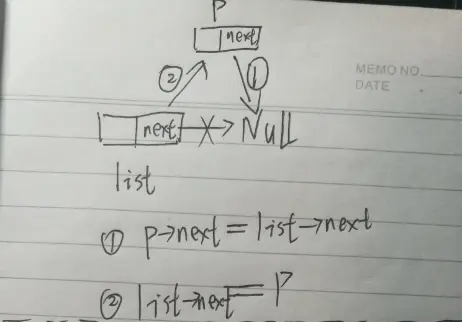 P
next
② ①
MEMO NO.
DATE
next Null
list
① p→next = list→next
② list→next = P